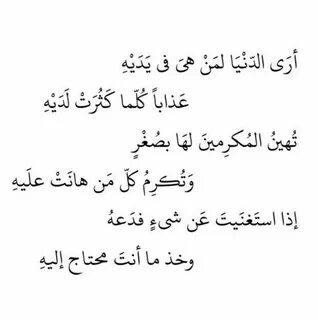 أرَى الدّنْيَا لمَنْ هىَ فى يَدَيْهِ
عَذاباً كُلّما كَثُرَتْ لَدَيْهِ
تُهينُ المُكرِمينَ لهَا بصُغْرٍ
وَتُكرِمُ كلّ مَن هانَتْ علَيهِ
إذا استَغنَيتَ عَن شىءٍ فدَعهُ
وخذ ما أنتَ محتاج إليهِ